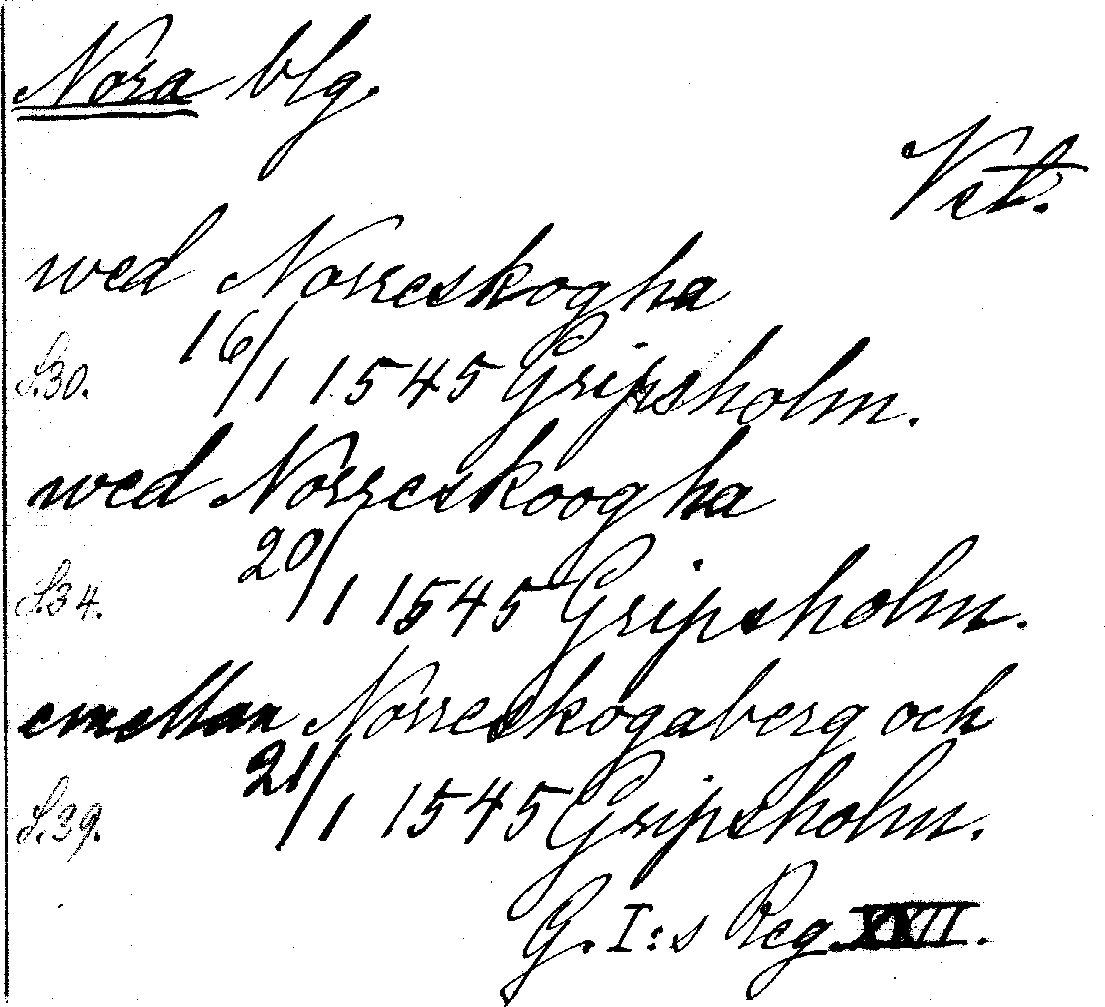 Nora blg.
Vst.
wed Norreskogha
S.30. 16/1 1545 Gripsholm.
wed Norreskoogha
S.34. 20/1 1545 Gripsholm.
emellan Norreskogaberg och
S.39. 21/1 1545 Gripsholm.
G. I:s Reg. XVII.